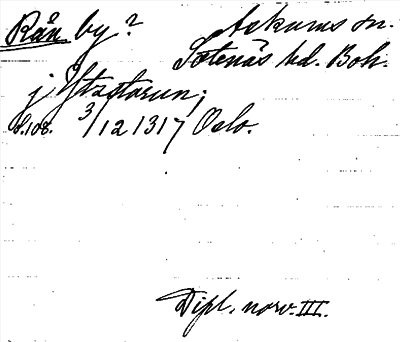 Rån by?
Askums sn.
Sotenäs hd. Boh.
j Ystastarun;
s. 108. 3/12 1317 Oslo.
Dipl. norv. III.